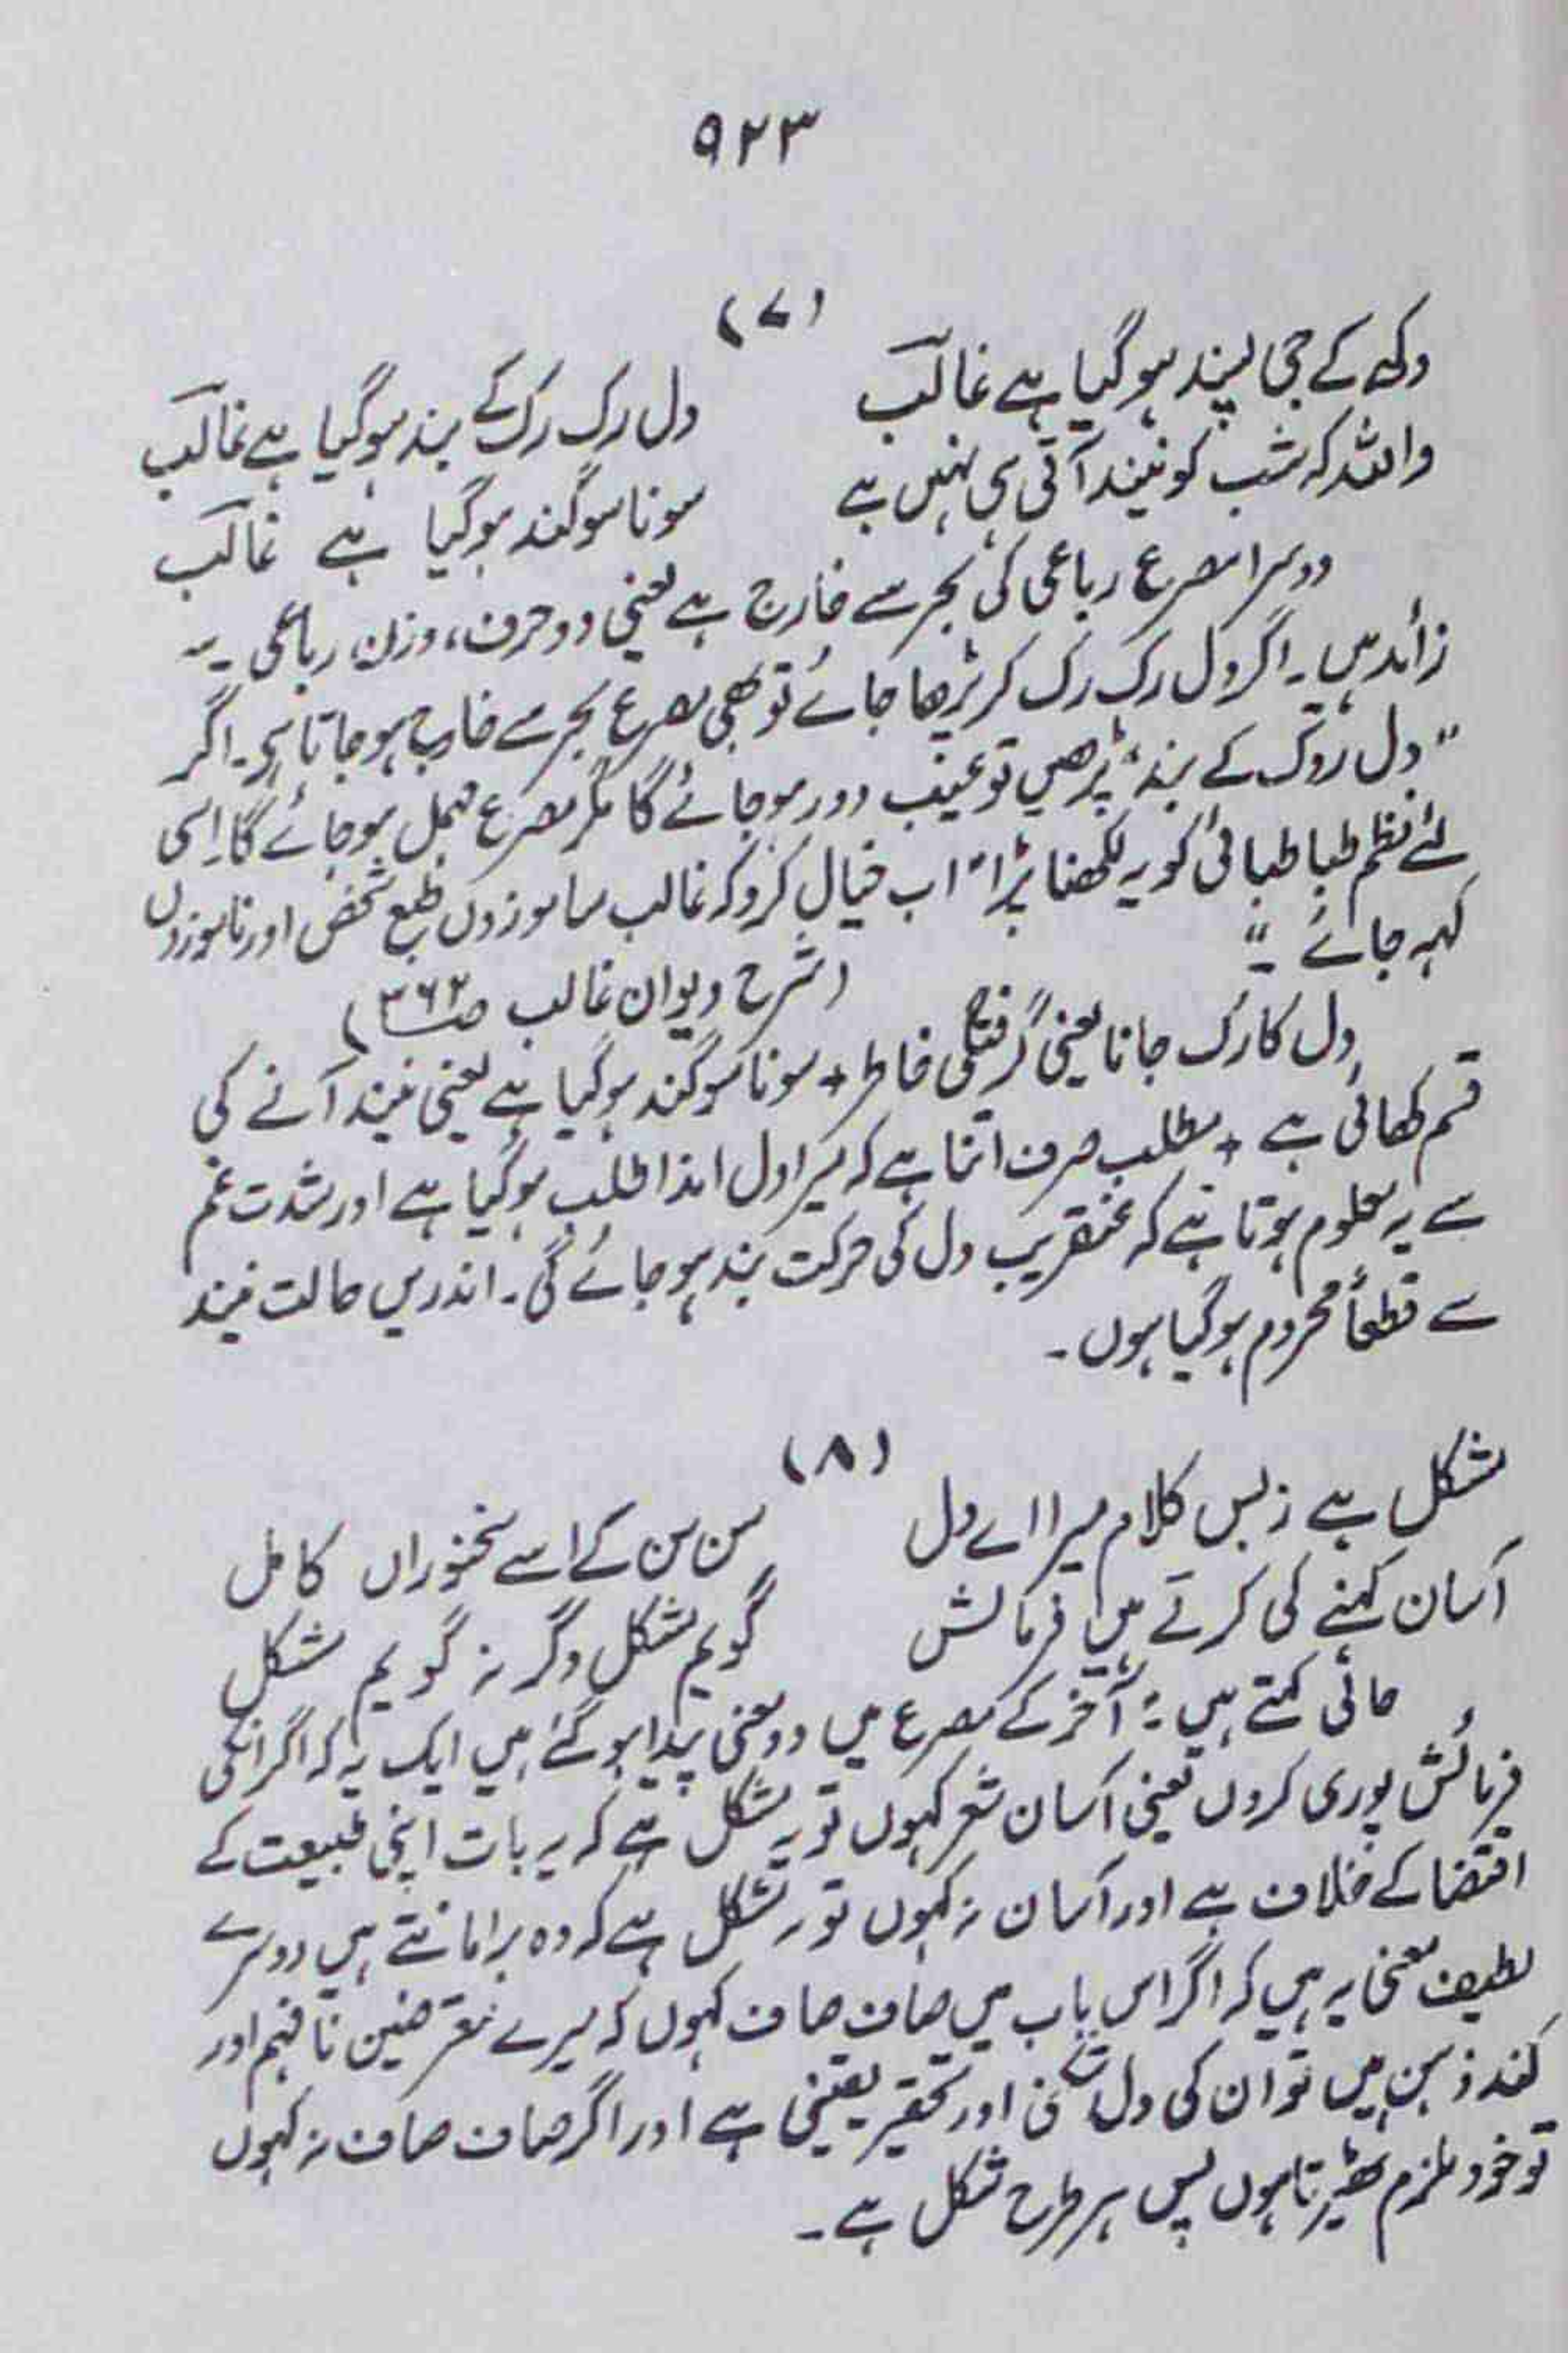 ۹۲۳
(۷)
دکھ کے جی پسند ہو گیا ہے غالب
دل رک رک کے بند ہو گیا ہے غالب
واللہ کہ شب کو نیند آتی ہی نہیں ہے
سونا سوگند ہو گیا ہے غالب
دوسرا مصرع رباعی کی بحر سے خارج ہے یعنی دو حرف، وزن رباعی سے
زائد ہیں۔ اگر دل رک رک کر پڑھا جائے تو بھی مصرع بحر سے خارج ہو جاتا ہے۔ اگر
"دل روک کے بند" پڑھیں تو عیب دور ہو جائے گا مگر مصرع مہمل ہو جائے گا۔ اسی
لئے نظم طباطبائی کو یہ لکھنا پڑا "اب خیال کرو کہ غالب سا موزوں طبع شخص اور ناموزوں
کہہ جائے۔"
(شرح دیوان غالب ص۳۶۲)
دل کا رک جانا یعنی گرفتگی خاطر + سونا سوگند ہو گیا ہے یعنی نیند آنے کی
قسم کھائی ہے + مطلب صرف اتنا ہے کہ میرا دل ایذا طلب ہو گیا ہے اور شدت غم
سے یہ معلوم ہوتا ہے کہ عنقریب دل کی حرکت بند ہو جائے گی۔ اندریں حالت نیند
سے قطعاً محروم ہو گیا ہوں۔
(۸)
مشکل ہے زبس کلام میرا اے دل
سن سن کے اسے سخنوران کامل
آسان کہنے کی کرتے ہیں فرمائش
گویم مشکل وگر نہ گویم مشکل
حالی کہتے ہیں: "آخر کے مصرع میں دو معنی پیدا ہو گئے ہیں ایک یہ کہ اگر انکی
فرمائش پوری کروں یعنی آسان شعر کہوں تو یہ مشکل ہے کہ یہ بات اپنی طبیعت کے
اقتضا کے خلاف ہے اور آسان نہ کہوں تو یہ مشکل ہے کہ وہ برا مانتے ہیں دوسرے
لطیف معنی یہ ہیں کہ اگر اس باب میں صاف صاف کہوں کہ میرے معترضین نافہم اور
کند ذہن ہیں تو ان کی دل شکنی اور تحقیر یقینی ہے اور اگر صاف صاف نہ کہوں
تو خود ملزم ٹھیرتا ہوں پس ہر طرح مشکل ہے۔